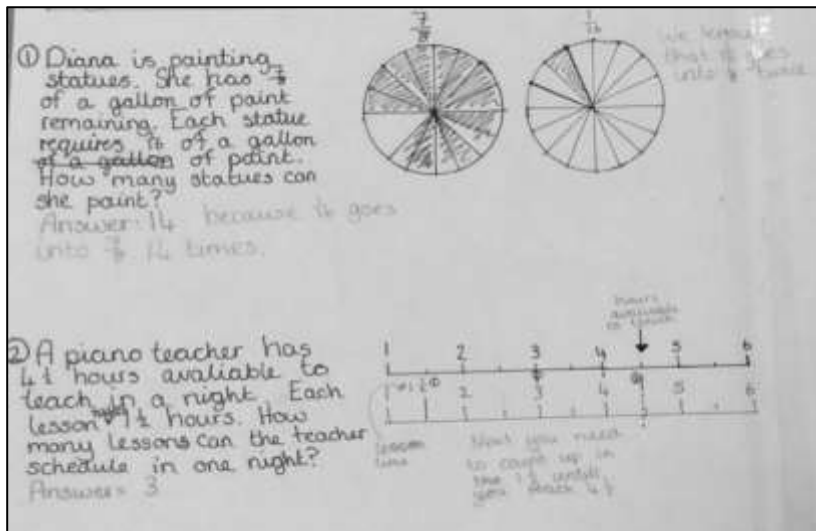 ① Diana is painting
statues. She has 7/8
of a gallon of paint
remaining. Each statue
requires 1/16 of a gallon
of a gallon of paint.
How many statues can
she paint?
Answer: 14 because 1/16 goes
into 7/8 14 times.
7/8
1/16
We know
that 1/16 goes
into 1/8 twice
② A piano teacher has
4½ hours avaliable to
teach in a night. Each
lesson 1½ hours. How
many lessons can the teacher
schedule in one night?
Answer= 3
hours
available
to teach
1 2 3 4 5 6
1 2 3 4 5 6
lesson
time
you need
to count up in
the 1½ untill
you reach 4½